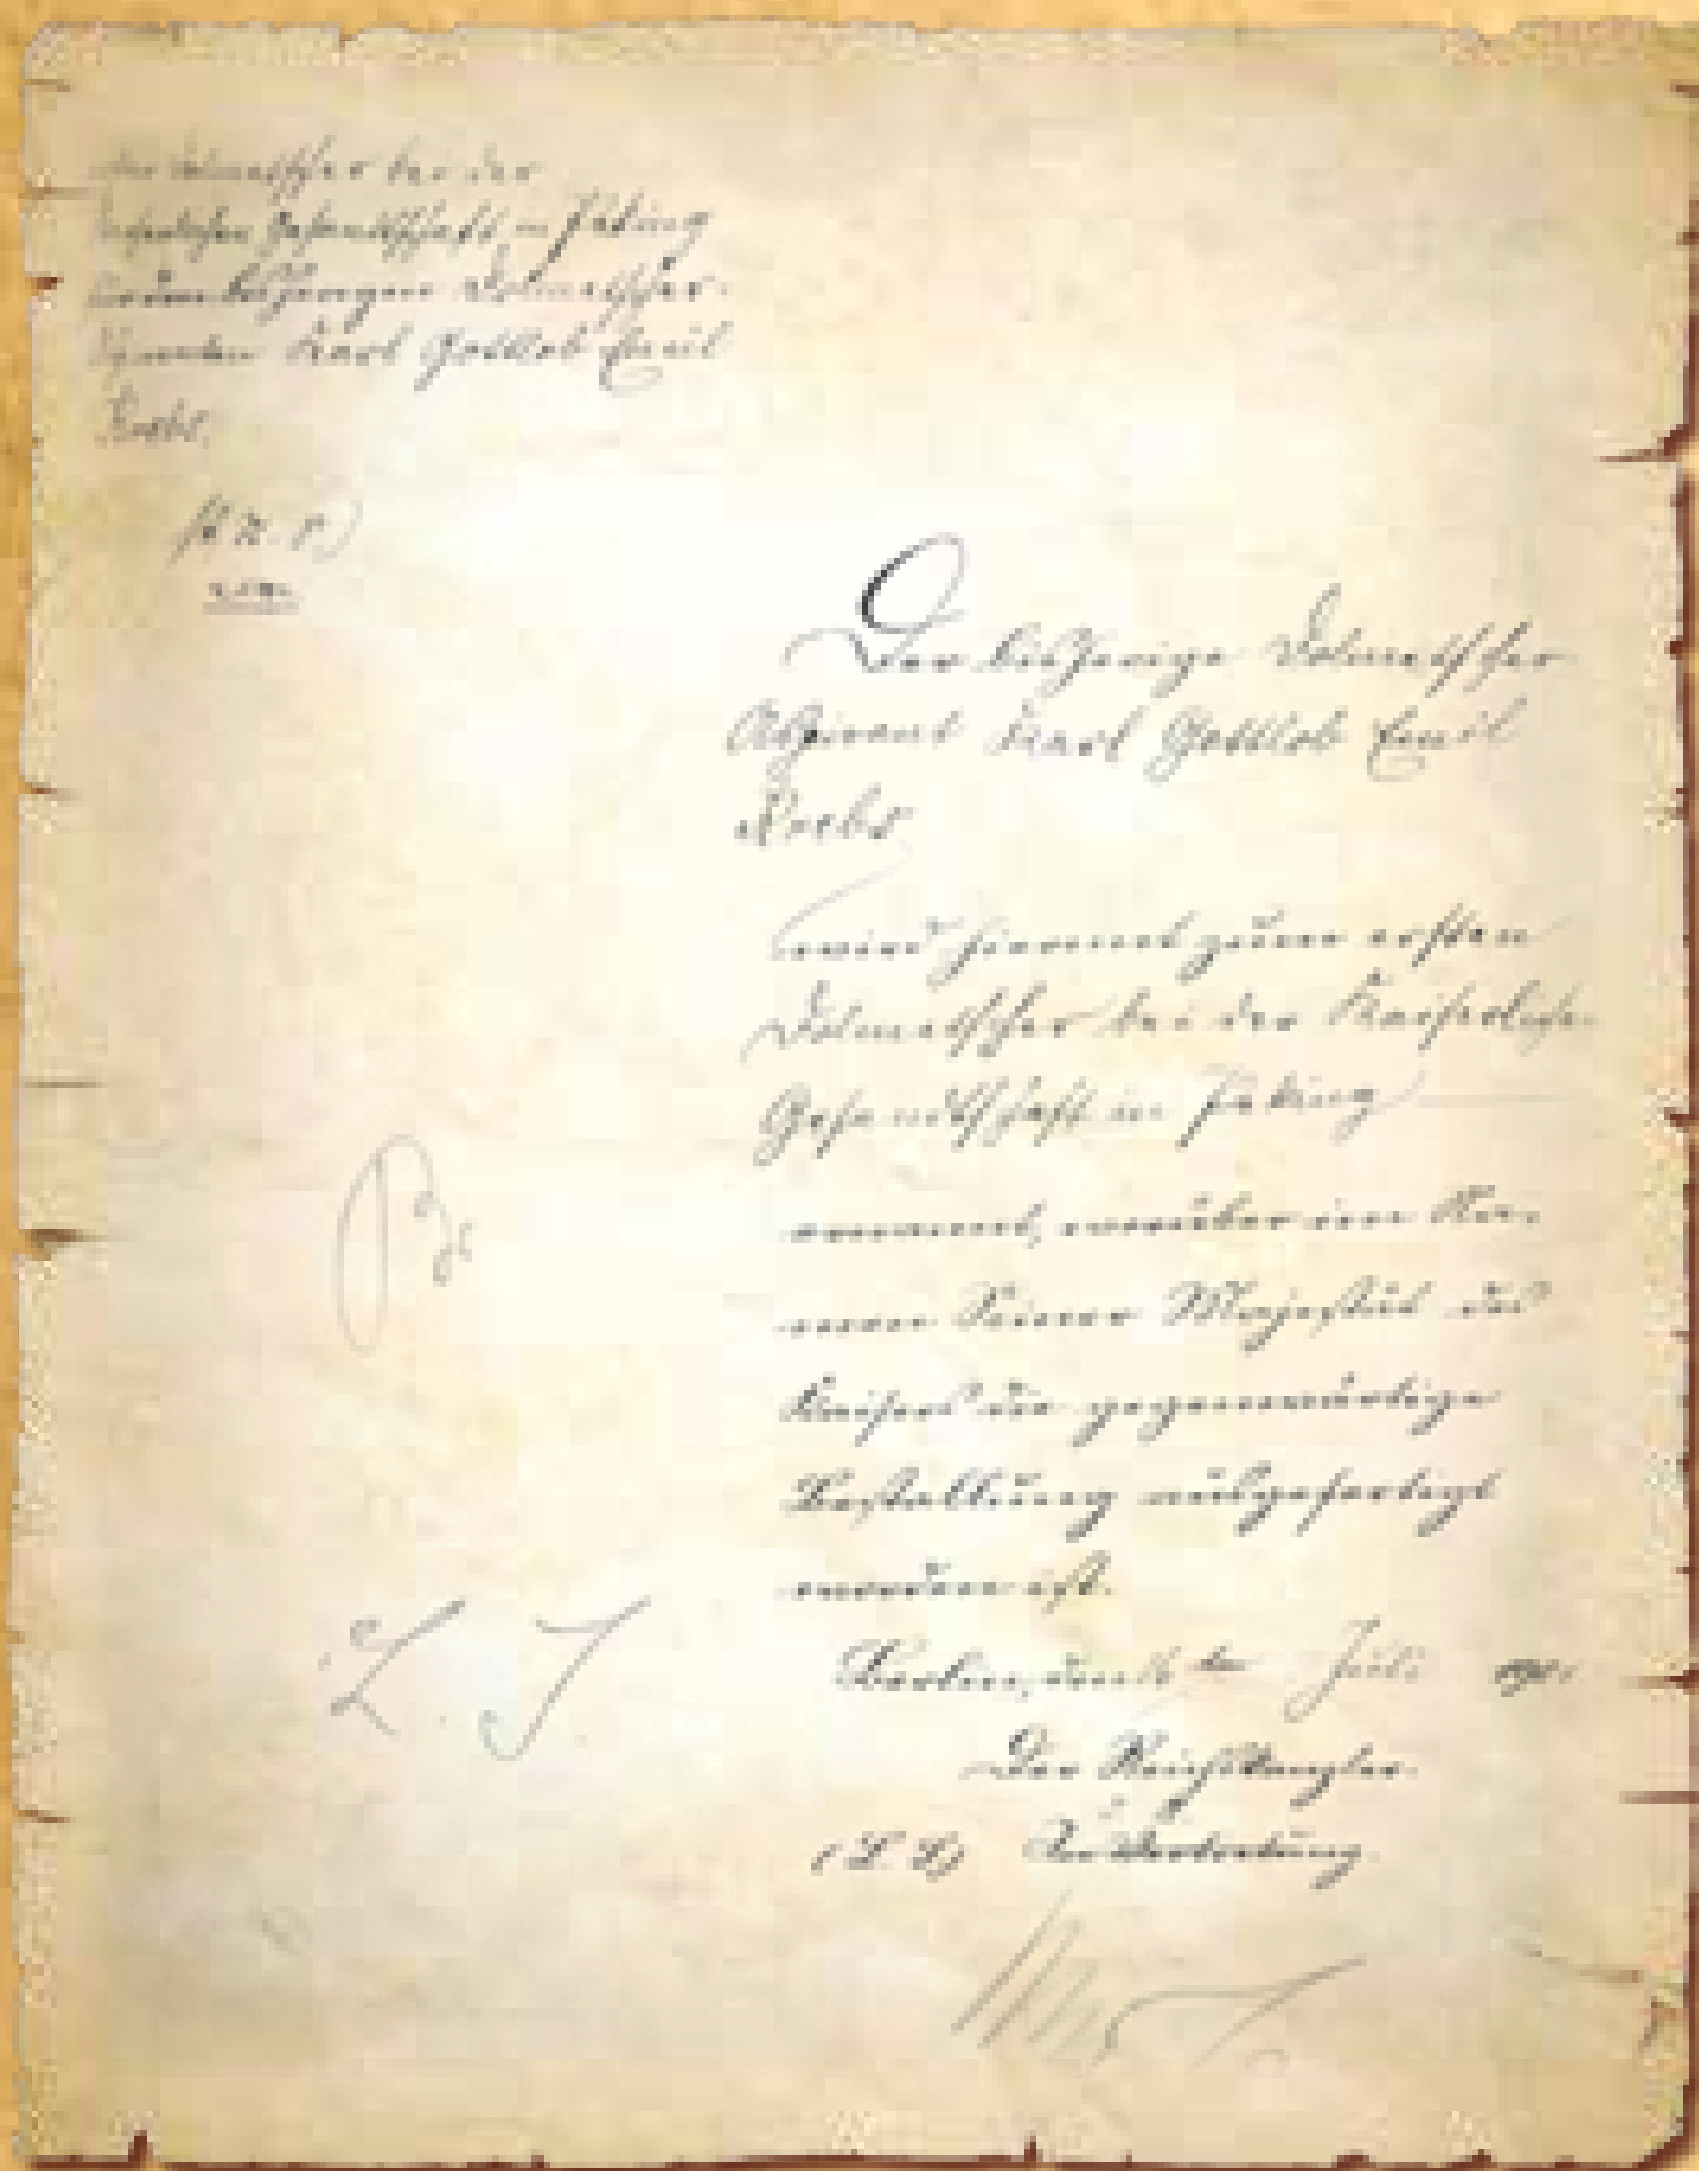 Dolmetscher bei der
Gesandtschaft in Peking
bisherigen Dolmetscher-
Karl Gottlob Emil
Krebs.
Der bisherige Dolmetscher
Aspirant Karl Gottlob Emil
Krebs
wird hiermit zum ersten
Dolmetscher bei der Kaiserlichen
Gesandtschaft in Peking
ernannt, worüber im Na-
men Seiner Majestät des
Kaisers die gegenwärtige
Bestallung ausgefertigt
worden ist.
Berlin, den Juli 1901
Der Reichskanzler.
In Vertretung.